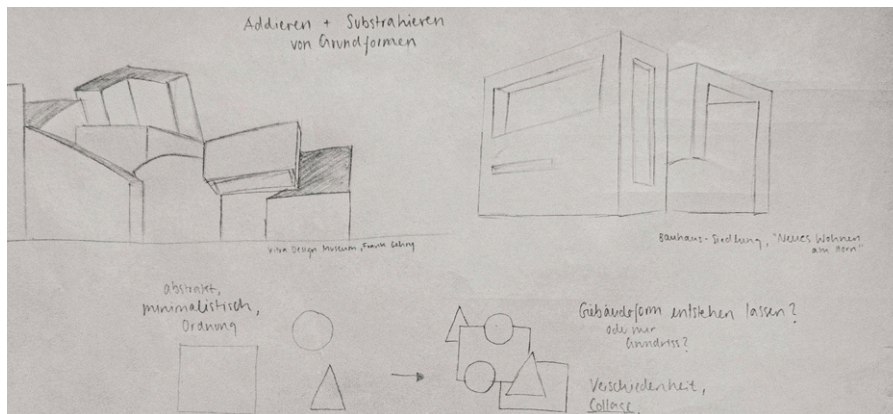 Addieren + Substrahieren
von Grundformen
Vitra Design Museum, Frank Gehry
Bauhaus-Siedlung, "Neues Wohnen
am Horn"
abstrakt,
minimalistisch,
Ordnung
Gebäudeform entstehen lassen?
oder nur
Grundriss?
Verschiedenheit,
Collage,